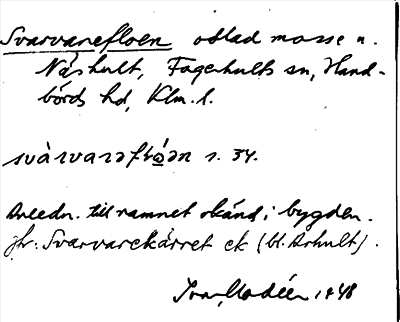 Svarvarefloen odlad mosse n.
Näshult, Fagerhults sn, Hand-
börds hd, Klm. l.
svàrvaraflóən s. 34.
Anledn. till namnet okänd i bygden.
jfr: Svarvarekärret ek (bl. Århult).
Ivar Modéer 1948